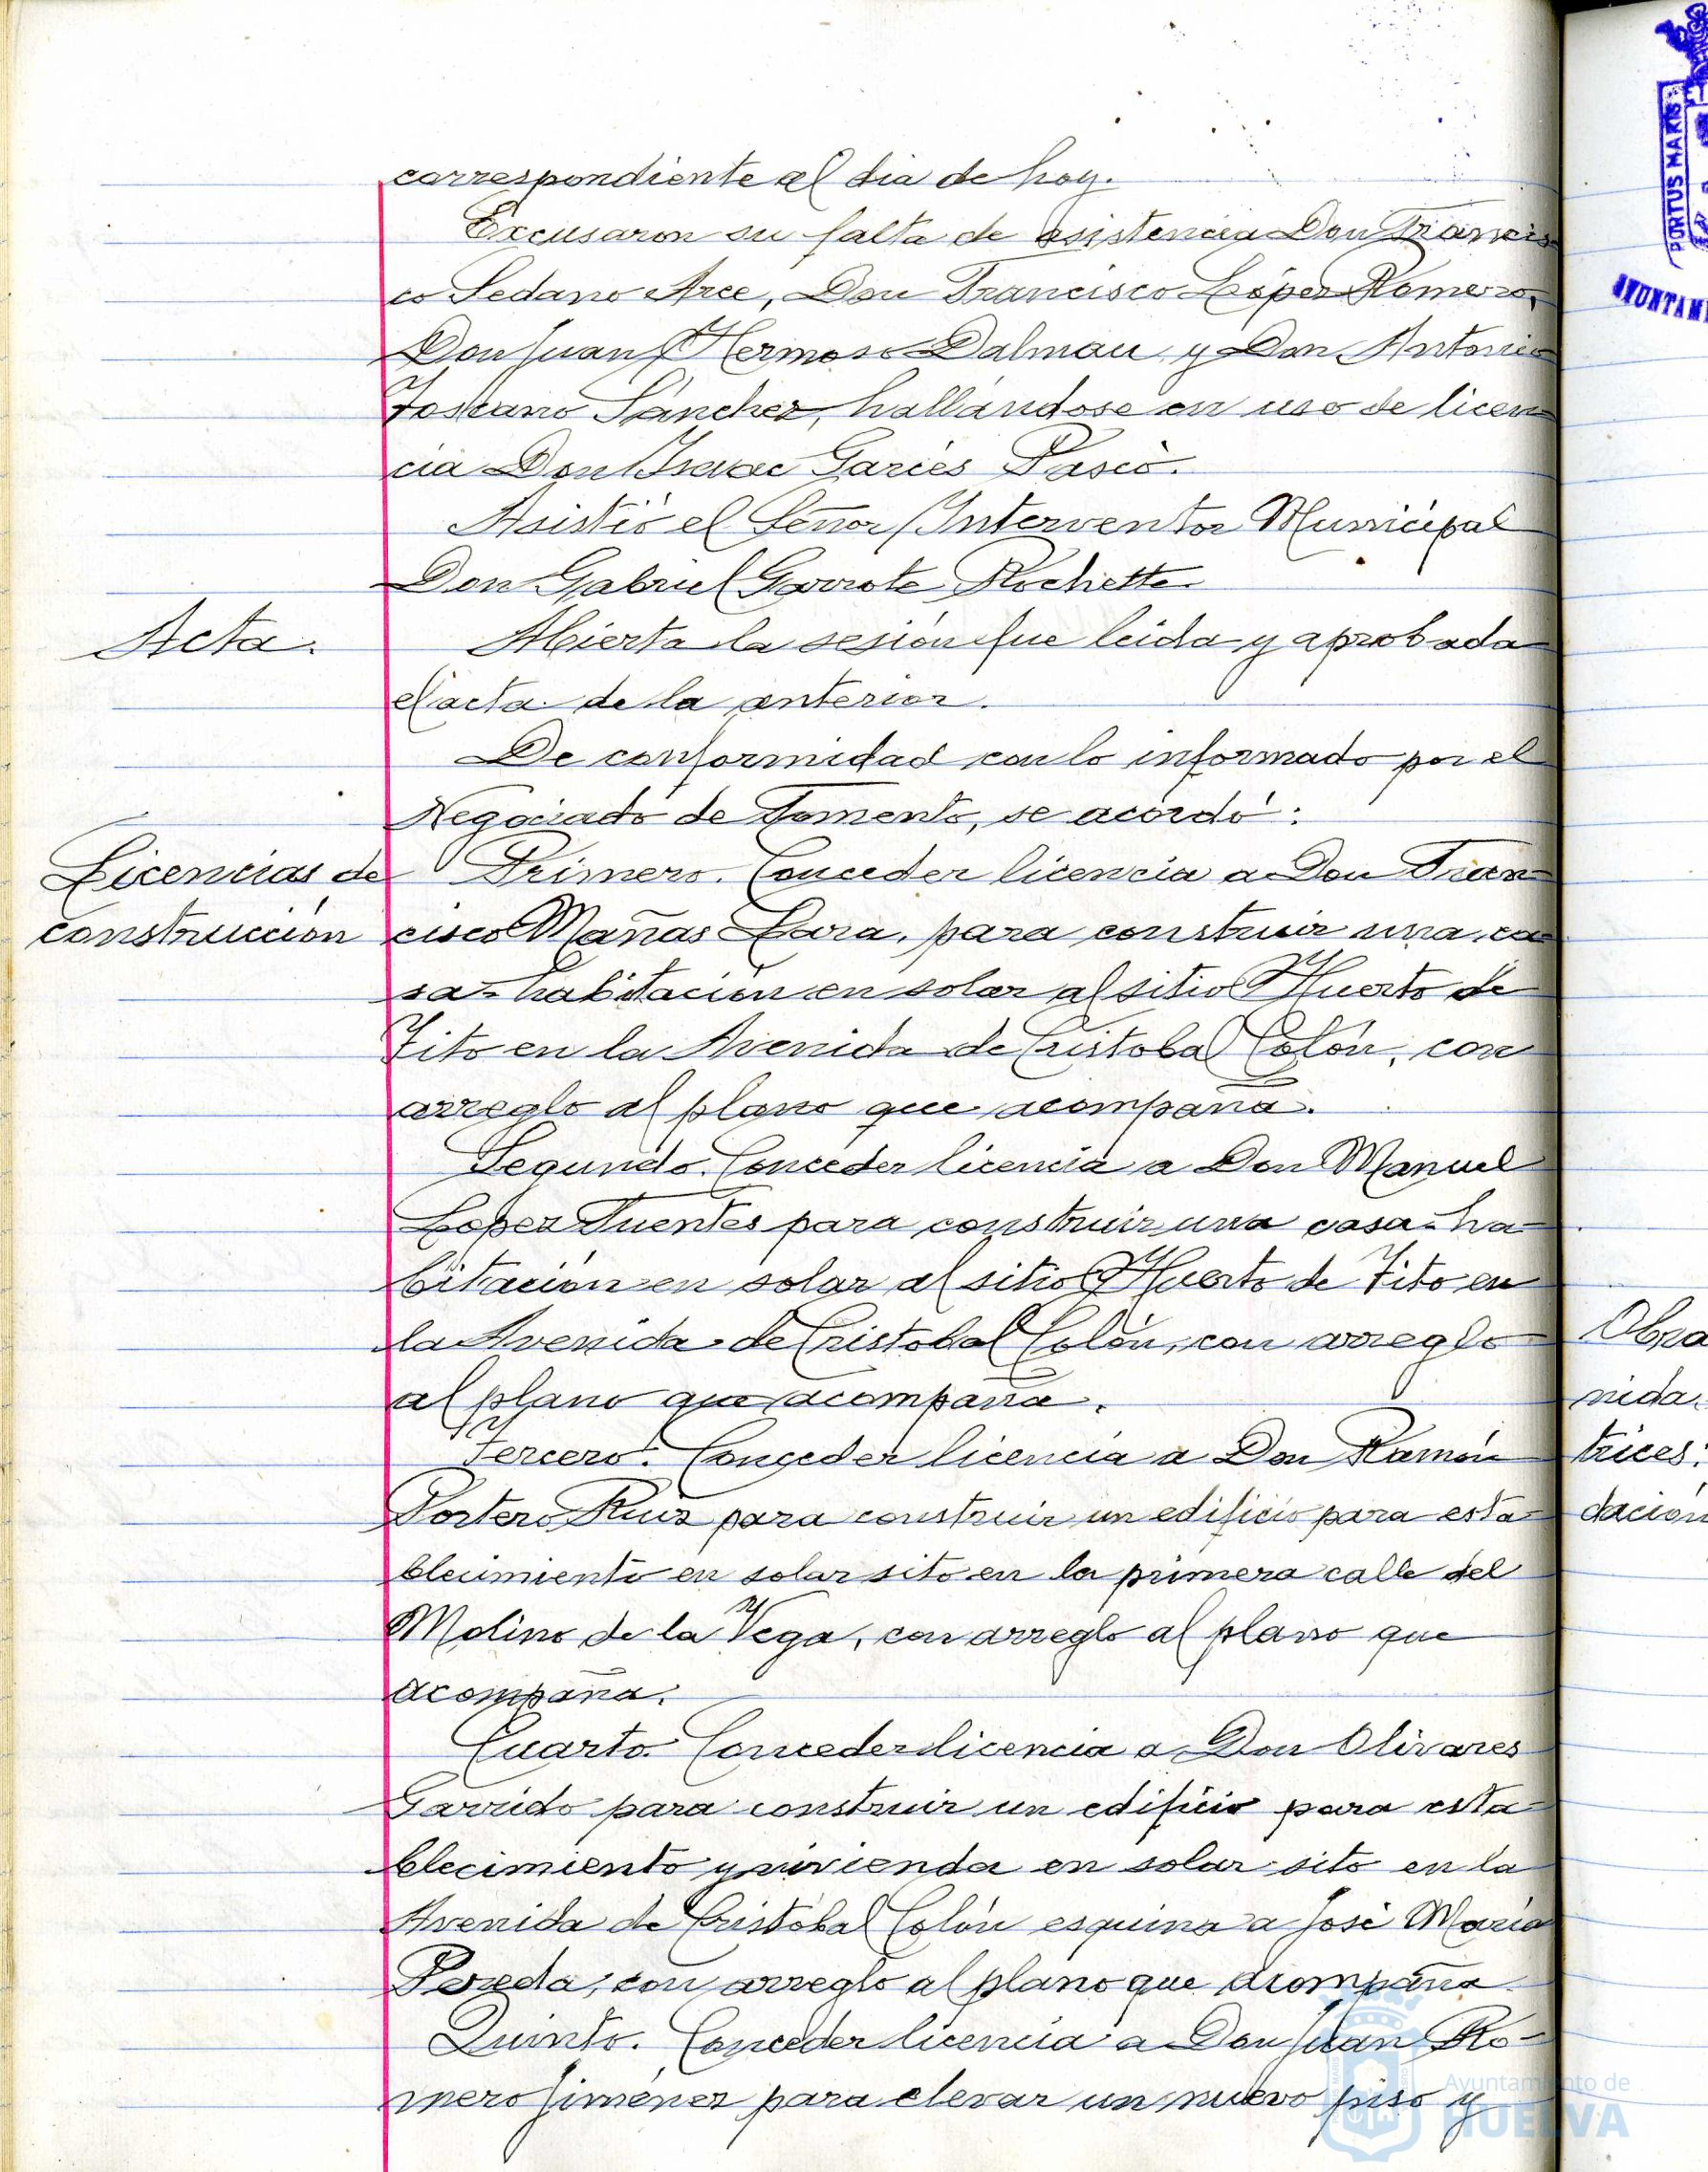 correspondiente al dia de hoy.
Excusaron su falta de asistencia Don Francis
co Sedano Arce, Don Francisco López Romero,
Don Juan Hermoso Dalmau y Don Antonio
Toscano Sánchez, hallándose en uso de licen
cia Don Isaac Garcés Pasió.
Asistió el Señor Interventor Municipal
Don Gabriel Garrote Rochette.
Acta.
Abierta la sesión fue leida y aprobada
el acta de la anterior.
De conformidad con lo informado por el
Negociado de Fomento, se acordó:
Licencias de
construcción
Primero. Conceder licencia a Don Fran
cisco Mañas Lara, para construir una ca
sa-habitación en solar al sitio Huerto de
Tito en la Avenida de Cristobal Colón, con
arreglo al plano que acompaña.
Segundo. Conceder licencia a Don Manuel
López Fuentes para construir una casa-ha
bitación en solar al sitio Huerto de Tito en
la Avenida de Cristobal Colón, con arreglo
al plano que acompaña.
Tercero. Conceder licencia a Don Ramón
Portero Ruiz para construir un edificio para esta-
blecimiento en solar sito en la primera calle del
Molino de la Vega, con arreglo al plano que
acompaña.
Cuarto. Conceder licencia a Don Olivares
Garrido para construir un edificio para esta-
blecimiento y vivienda en solar sito en la
Avenida de Cristóbal Colón esquina a José María
Pereda, con arreglo al plano que acompaña
Quinto. Conceder licencia a Don Juan Ro-
mero Jiménez para elevar un nuevo piso y
Obra
nida
trices:
dación
PORTUS MARIS
AYUNTAMI
Ayuntamiento de
HUELVA